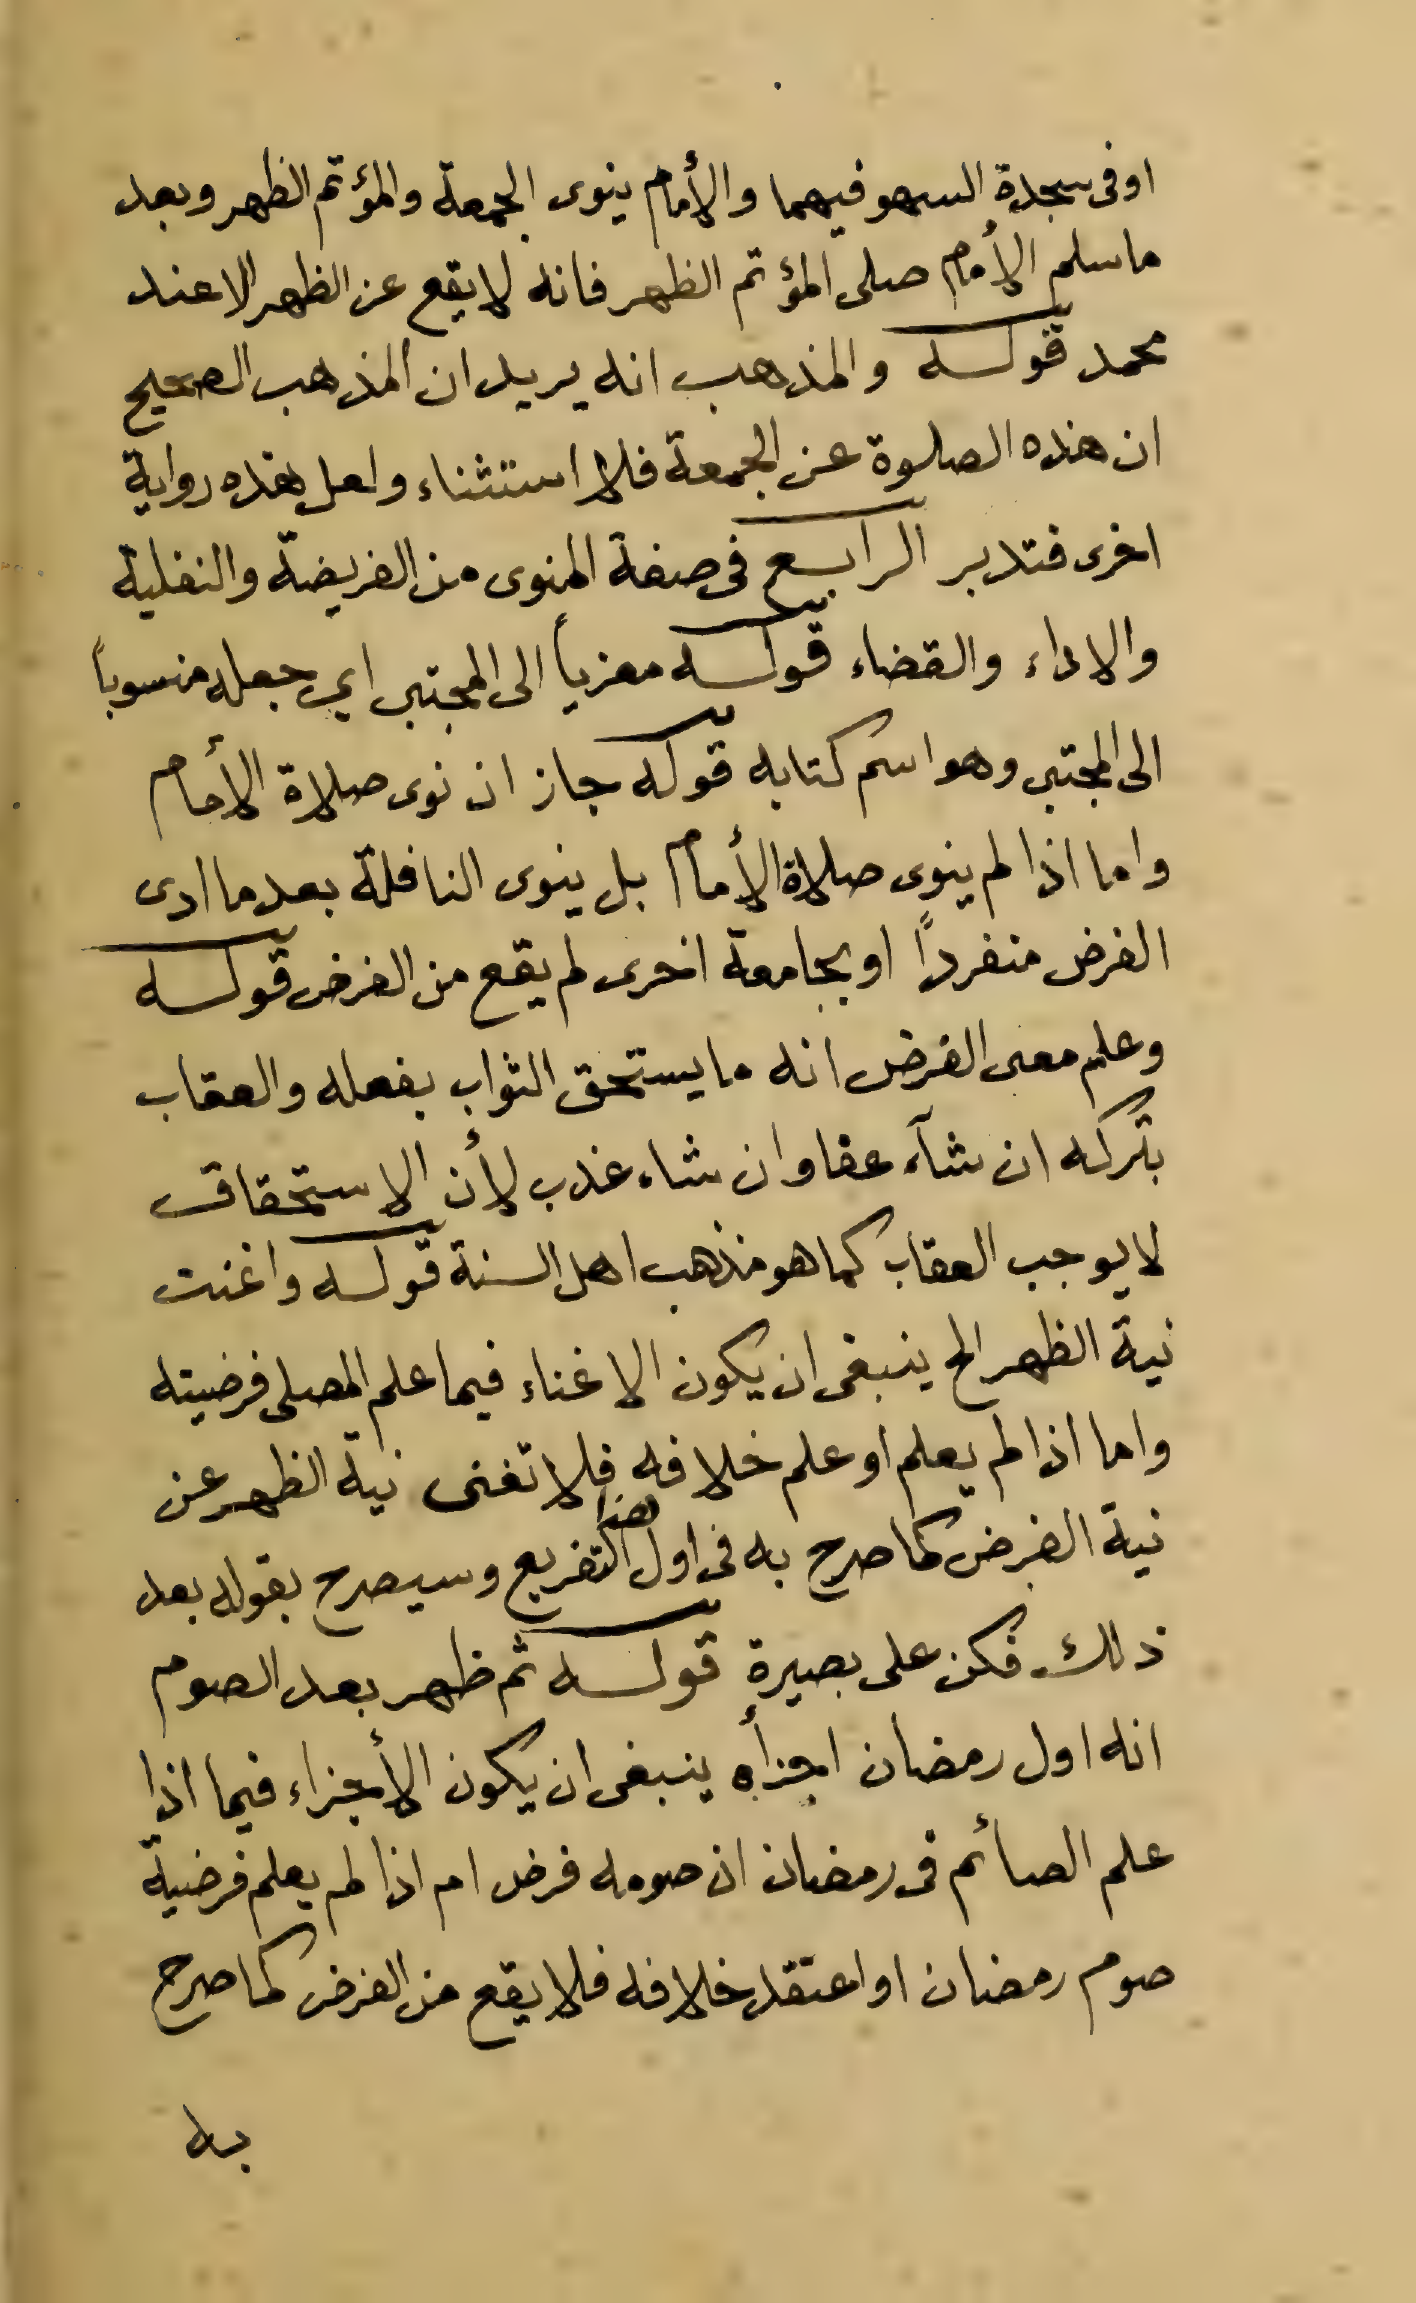 اوفى سجدة السهو فيهما والأمام ينوى الجمعة والمؤتم الظهر وبعد
ما سلم الأمام صلى المؤتم الظهر فانه لا يقع عن الظهر الا عند
محمد قوله والمذهب انه يريد ان المذهب الصحيح
ان هذه الصلوة عن الجمعة فلا استثناء ولعل هذه رواية
اخرى فتدبر الرابع فى صفة المنوى من الفريضة والنفلية
والاداء والقضاء قوله معزياً الى المجتبى اي جعله منسوباً
الى المجتبى وهو اسم كتابه قوله جاز ان نوى صلاة الأمام
واما اذا لم ينوى صلاة الأمام بل ينوى النافلة بعد ما ادى
الفرض منفرداً او بجامعة اخرى لم يقع من الفرض قوله
وعلم معنى الفرض انه ما يستحق الثواب بفعله والعقاب
بتركه ان شآء عفا وان شاء غذب لأن الاستحقاق
لا يوجب العقاب كما هو مذهب اهل السنة قوله واغنت
نية الظهر الخ ينبغى ان يكون الاغناء فيما علم المصلى فرضيته
واما اذا لم يعلم او علم خلافه فلا تغنى نية الظهر عن
نية الفرض كما صرح به فى اول هذا التفريع وسيصرح بقوله بعد
ذلك فكن على بصيرة قوله ثم ظهر بعد الصوم
انه اول رمضان اجزأه ينبغى ان يكون الأجزاء فيما اذا
علم الصائم فى رمضان ان صومه فرض ام اذا لم يعلم فرضية
صوم رمضان او اعتقد خلافه فلا يقع من الفرض كما صرح
به